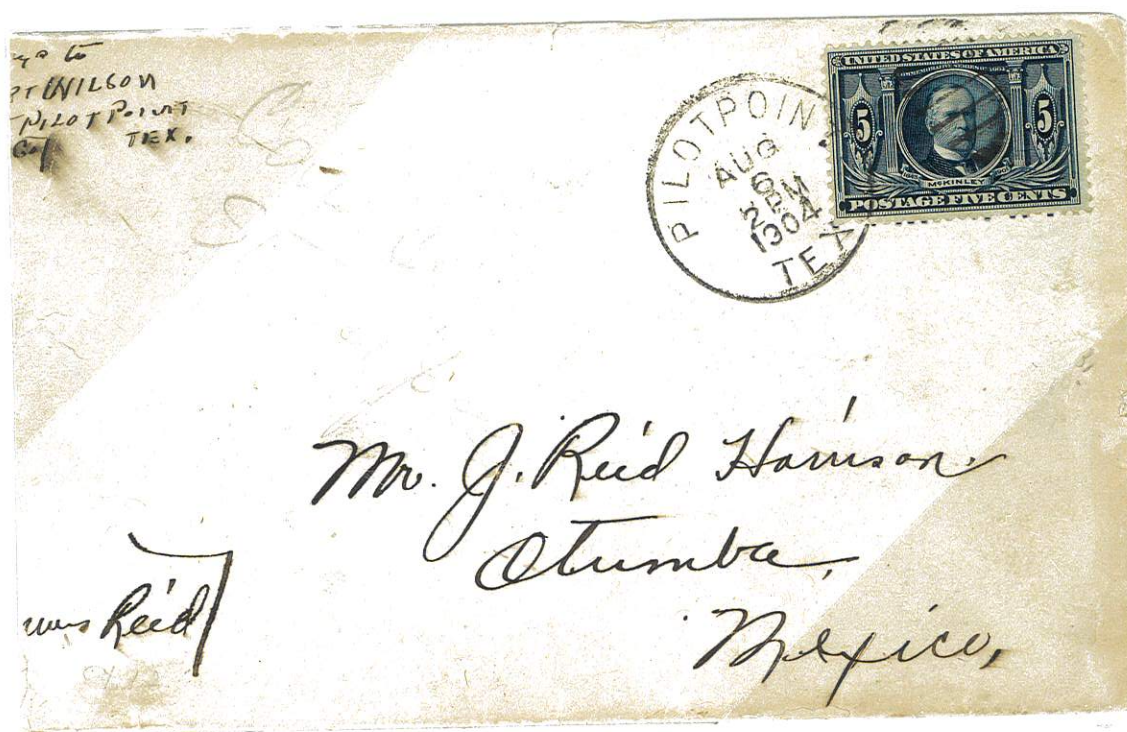 to
WILSON
PILOT POINT
TEX.
PILOTPOINT
AUG
6
2 PM
1904
TEX
UNITED STATES OF AMERICA
5 5
MCKINLEY
POSTAGE FIVE CENTS
Mr. J. Reid Harrison.
Otumba,
Mexico,
Reid